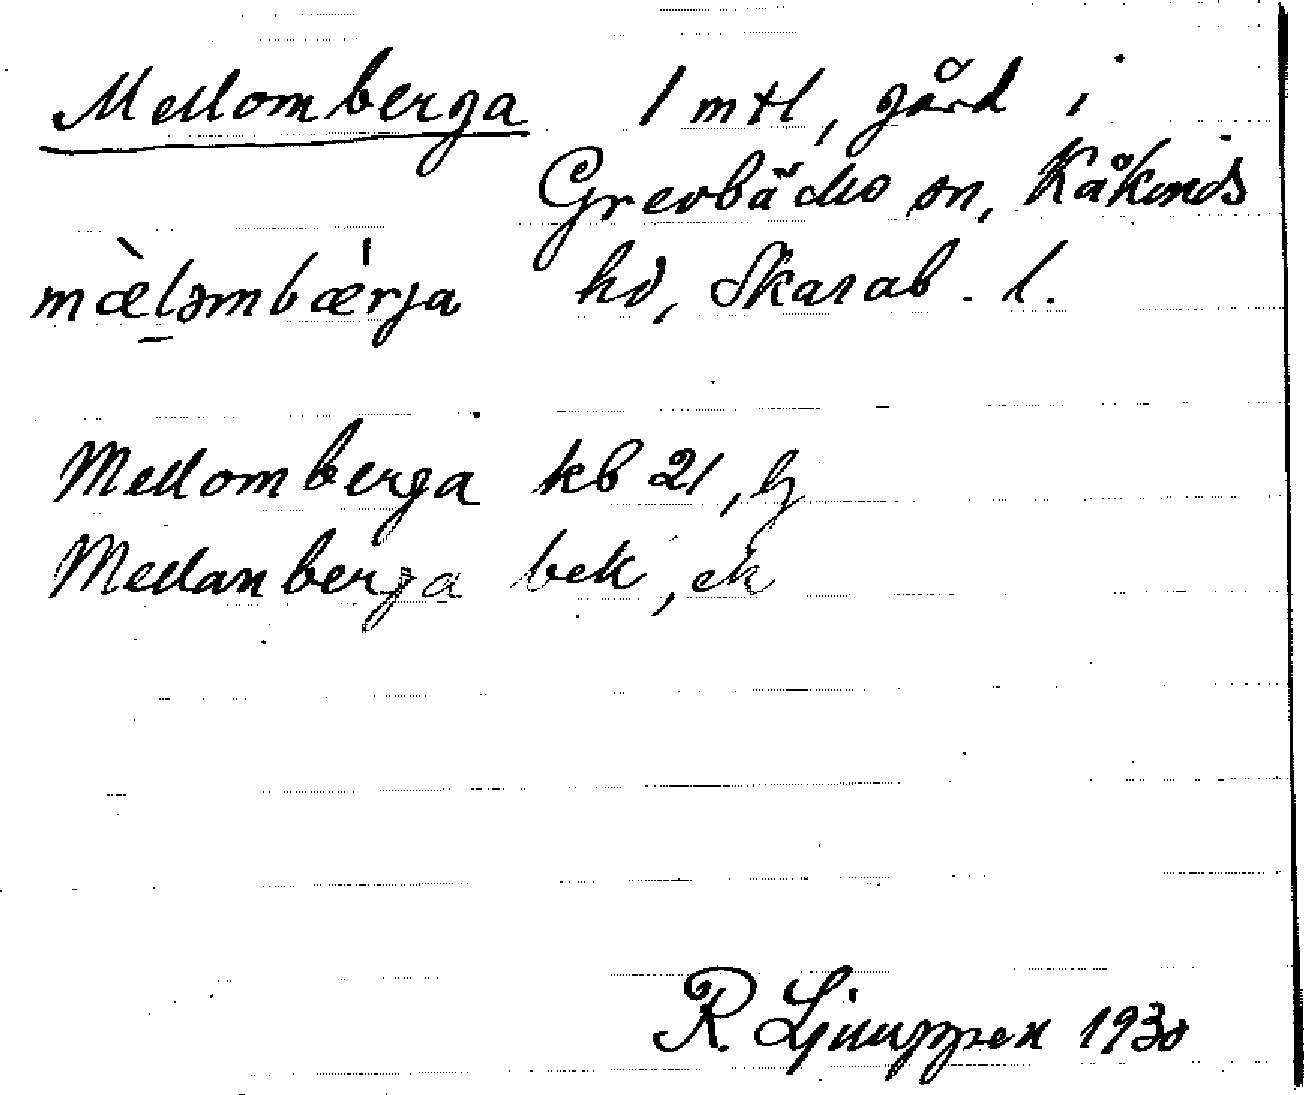 Mellomberga 1 mtl, gård i
Grevbäcks sn, Kåkinds
mæ̀ləmbæ̍rja hd, Skarab. l.
Mellomberga kb 21,
Mellanberga bek, ek
R. Ljunggren 1930